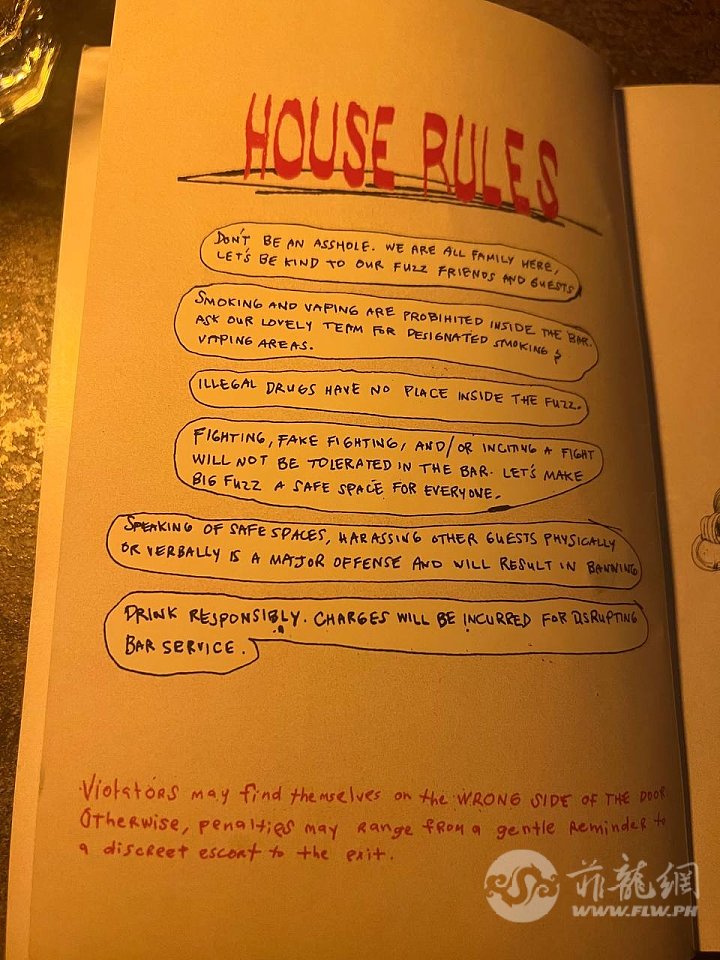 HOUSE RULES
DON'T BE AN ASSHOLE. WE ARE ALL FAMILY HERE,
LET'S BE KIND TO OUR FUZZ FRIENDS AND GUESTS
SMOKING AND VAPING ARE PROBIHITED INSIDE THE BAR.
ASK OUR LOVELY TEAM FOR DESIGNATED SMOKING &
VAPING AREAS.
ILLEGAL DRUGS HAVE NO PLACE INSIDE THE FUZZ.
FIGHTING, FAKE FIGHTING, AND/OR INCITING A FIGHT
WILL NOT BE TOLERATED IN THE BAR. LET'S MAKE
BIG FUZZ A SAFE SPACE FOR EVERYONE.
SPEAKING OF SAFE SPACES, HARASSING OTHER GUESTS PHYSICALLY
OR VERBALLY IS A MAJOR OFFENSE AND WILL RESULT IN BANNING
DRINK RESPONSIBLY. CHARGES WILL BE INCURRED FOR DISRUPTING
BAR SERVICE.
Violators may find themselves on the WRONG SIDE OF THE DOOR.
Otherwise, penalties may range from a gentle reminder to
a discreet escort to the exit.
菲龍網
WWW.FLW.PH